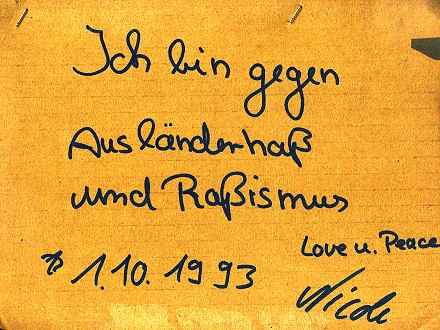 Ich bin gegen
Ausländerhaß
und Raßismus
Love u. Peace
* 1.10.1993